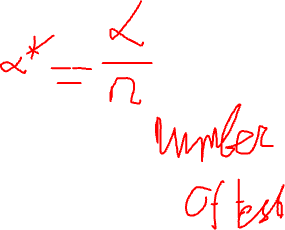 α* = α/n
number
of test